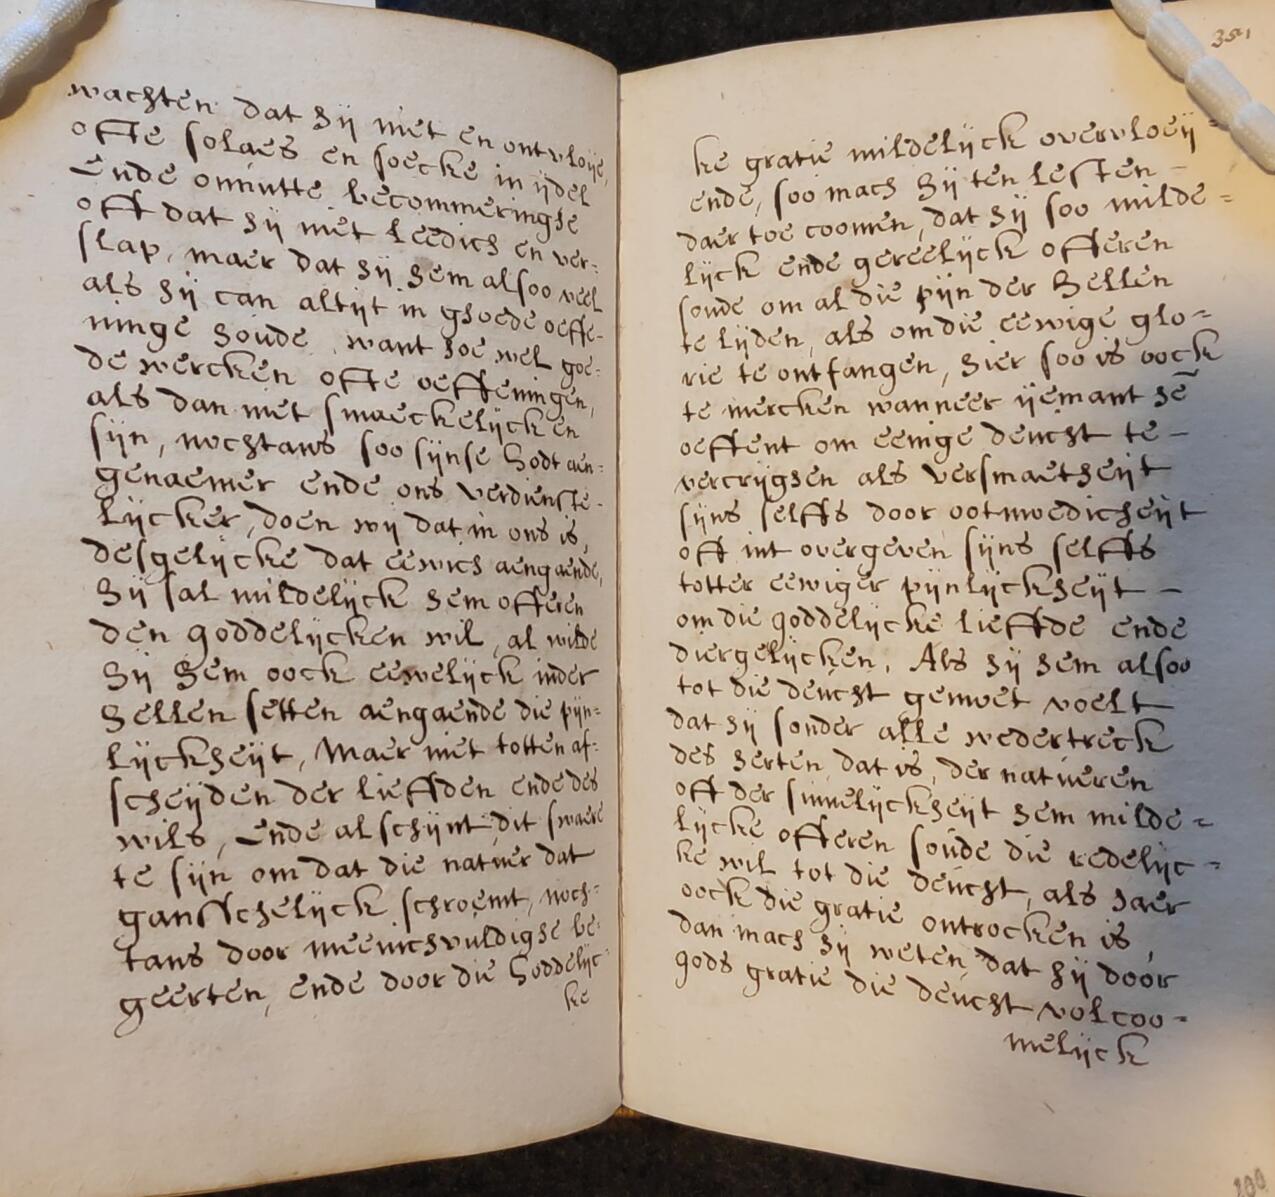 wachten dat hij niet en ontvloije,
ofte solaes en soecke in ijdel
Ende onnutte becommeringhe
oft dat hij niet leedich en ver=
slap, maer dat hij hem alsoo veel
als hij can altijt in ghoede oeffe=
ninge houde, want hoe wel goe=
de wercken ofte oeffeningen,
als dan niet smaeckelijck en
sijn, nochtans soo sijnse Godt aen=
genaemer ende ons verdienste-
lijcker, doen wij dat in ons is,
desgelijcke dat eewich aengaende,
hij sal mildelijck hem offeren
den goddelijcken wil, al wilde
hij hem oock eewelijck inder
hellen setten aengaende die pijn=
lijckheijt, Maer niet totten af=
scheijden der lieffden ende des
wils, Ende al schijnt dit swaere
te sijn om dat die natuer dat
gansschelijck schroemt, noch=
tans door meenichvuldighe be=
geerten, ende door die Goddelijc=
ke
351
ke gratie mildelijck overvloeij=
ende, soo mach hij ten lesten -
daer toe coomen, dat hij soo milde=
lijck ende gereelijck offeren
soude om al die pijn der hellen
te lijden, als om die eewige glo=
rie te ontfangen, hier soo is oock
te mercken wanneer ijemant hē
oeffent om eenige deucht te -
vercrijghen als versmaetheijt
sijns selffs door ootmoedicheijt
oft int overgeven sijns selffs
totter eewiger pijnlijckheijt -
om die goddelijcke lieffde ende
diergelijcken, Als hij hem alsoo
tot die deucht gemoet voelt
dat hij sonder alle wedertreck
des herten, dat is, der natueren
oft der sinnelijckheijt hem milde=
lijcke offeren soude die redelijc=
ke wil tot die deucht, als haer
oock die gratie ontrocken is,
dan mach hij weten, dat hij door
gods gratie die deucht volcoo=
melijck
200